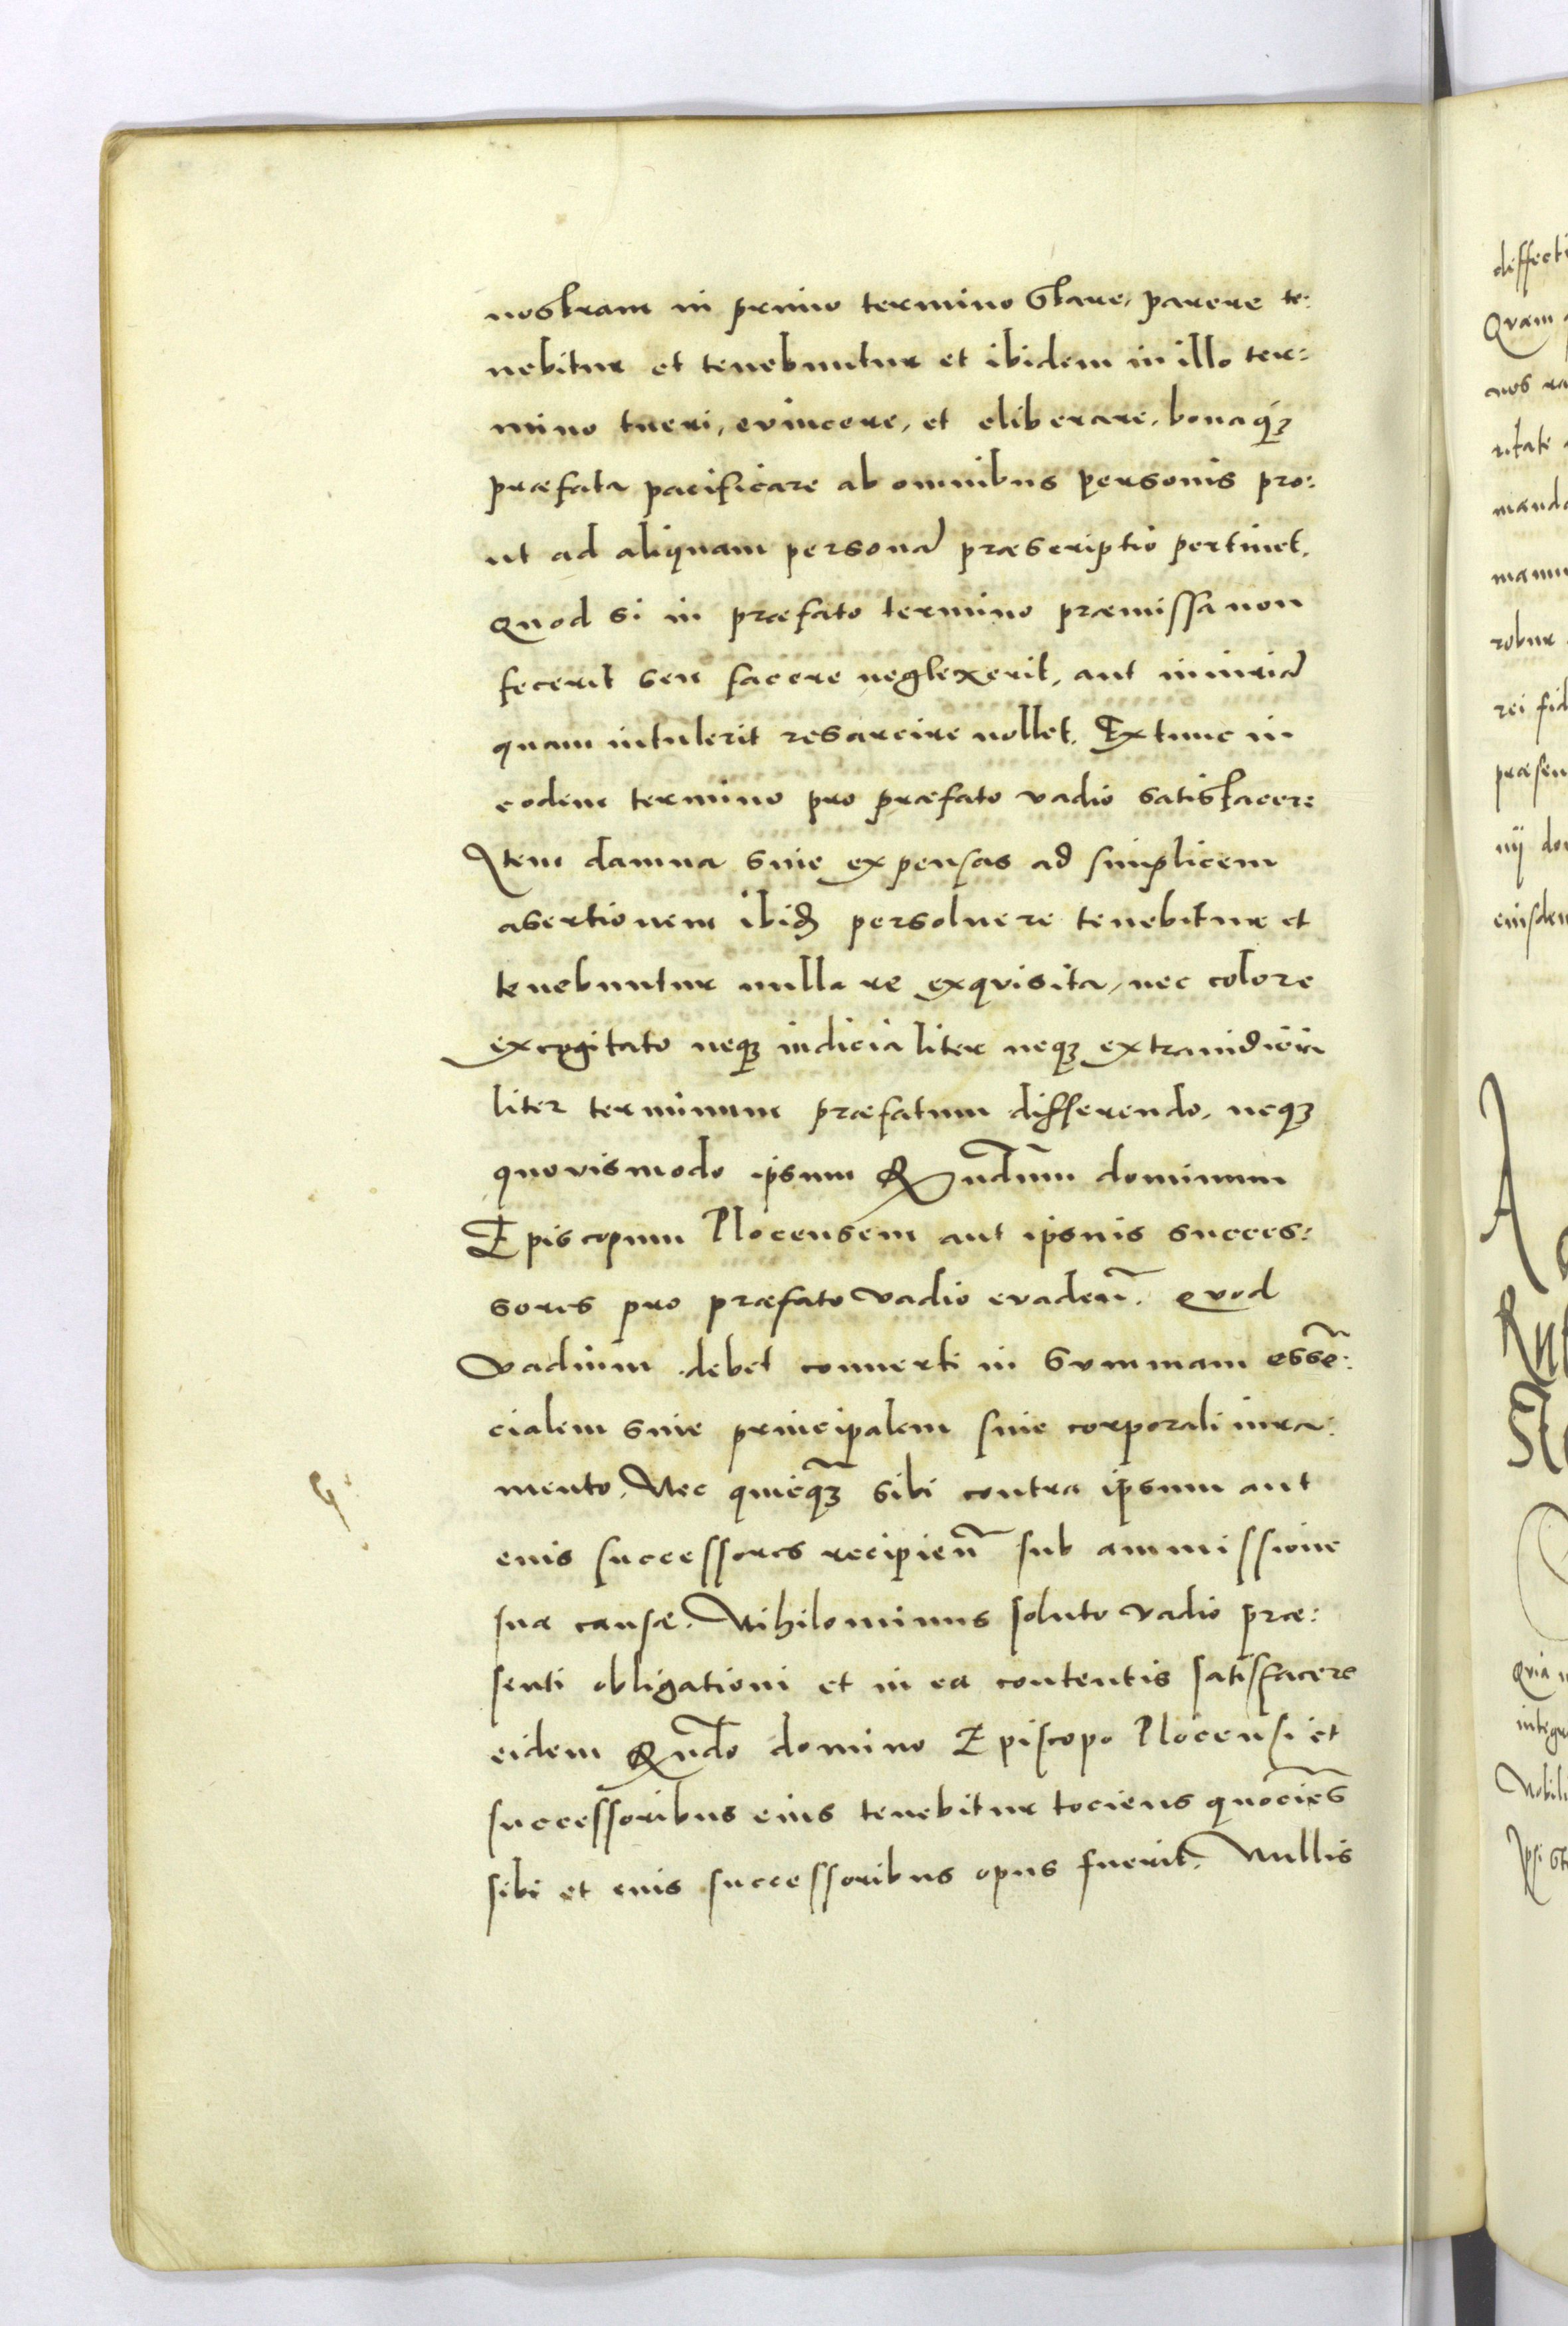 nostram in primo termino stare, parere te:
nebitur et tenebuntur et ibidem in illo ter:
mino tueri, evincere, et eliberare, bonaq3
præfata pacificare ab omnibus personis pro:
ut ad aliquam personā præscriptio pertinet.
Quod si in præfato termino præmissa non
fecerit seu facere neglexerit, aut iniuriā
quam intulerit resarcire nollet. Extunc in
eodem termino pro præfato vadio satisfacere
Item damna siue expensas ad simplicem
asertionem ibid persoluere tenebitur et
tenebuntur nulla re exqvisita, nec colore
excogitato neq3 iudicialiter neq3 extraiudicia
liter terminum præfatum differendo, neq3
quovismodo ipsum Rndūm dominum
Episcopum Plocensem aut ipsius succes:
sores pro præfato vadio evadeñ. Qvod
Vadium debet conuerti in Summam essē:
cialem siue principalem siue corporali iura:
mento, Nec quicq̃3 sibi contra ipsum aut
euis successores recipieñ sub ammissione
suæ causæ. Nihilominus soluto vadio præ:
senti obligationi et in ea contentis satisfacere
eidem Rñdo domino Episcopo Plocensi et
successoribus eius tenebitur tociens quociēs
sibi et euis successoribus opus fuerit. Nullis
diffecti
Qvam
nos ra
ritate
manda
manu
robur
rei fid
præsen
nij do
eiusdem
A
Qvia
integr
Nobil